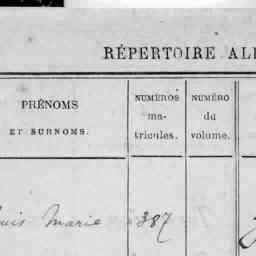 RÉPERTOIRE AL
PRÉNOMS
ET SURNOMS.
NUMÉROS
ma-
tricules.
NUMÉRO
du
volume.
Marie 387